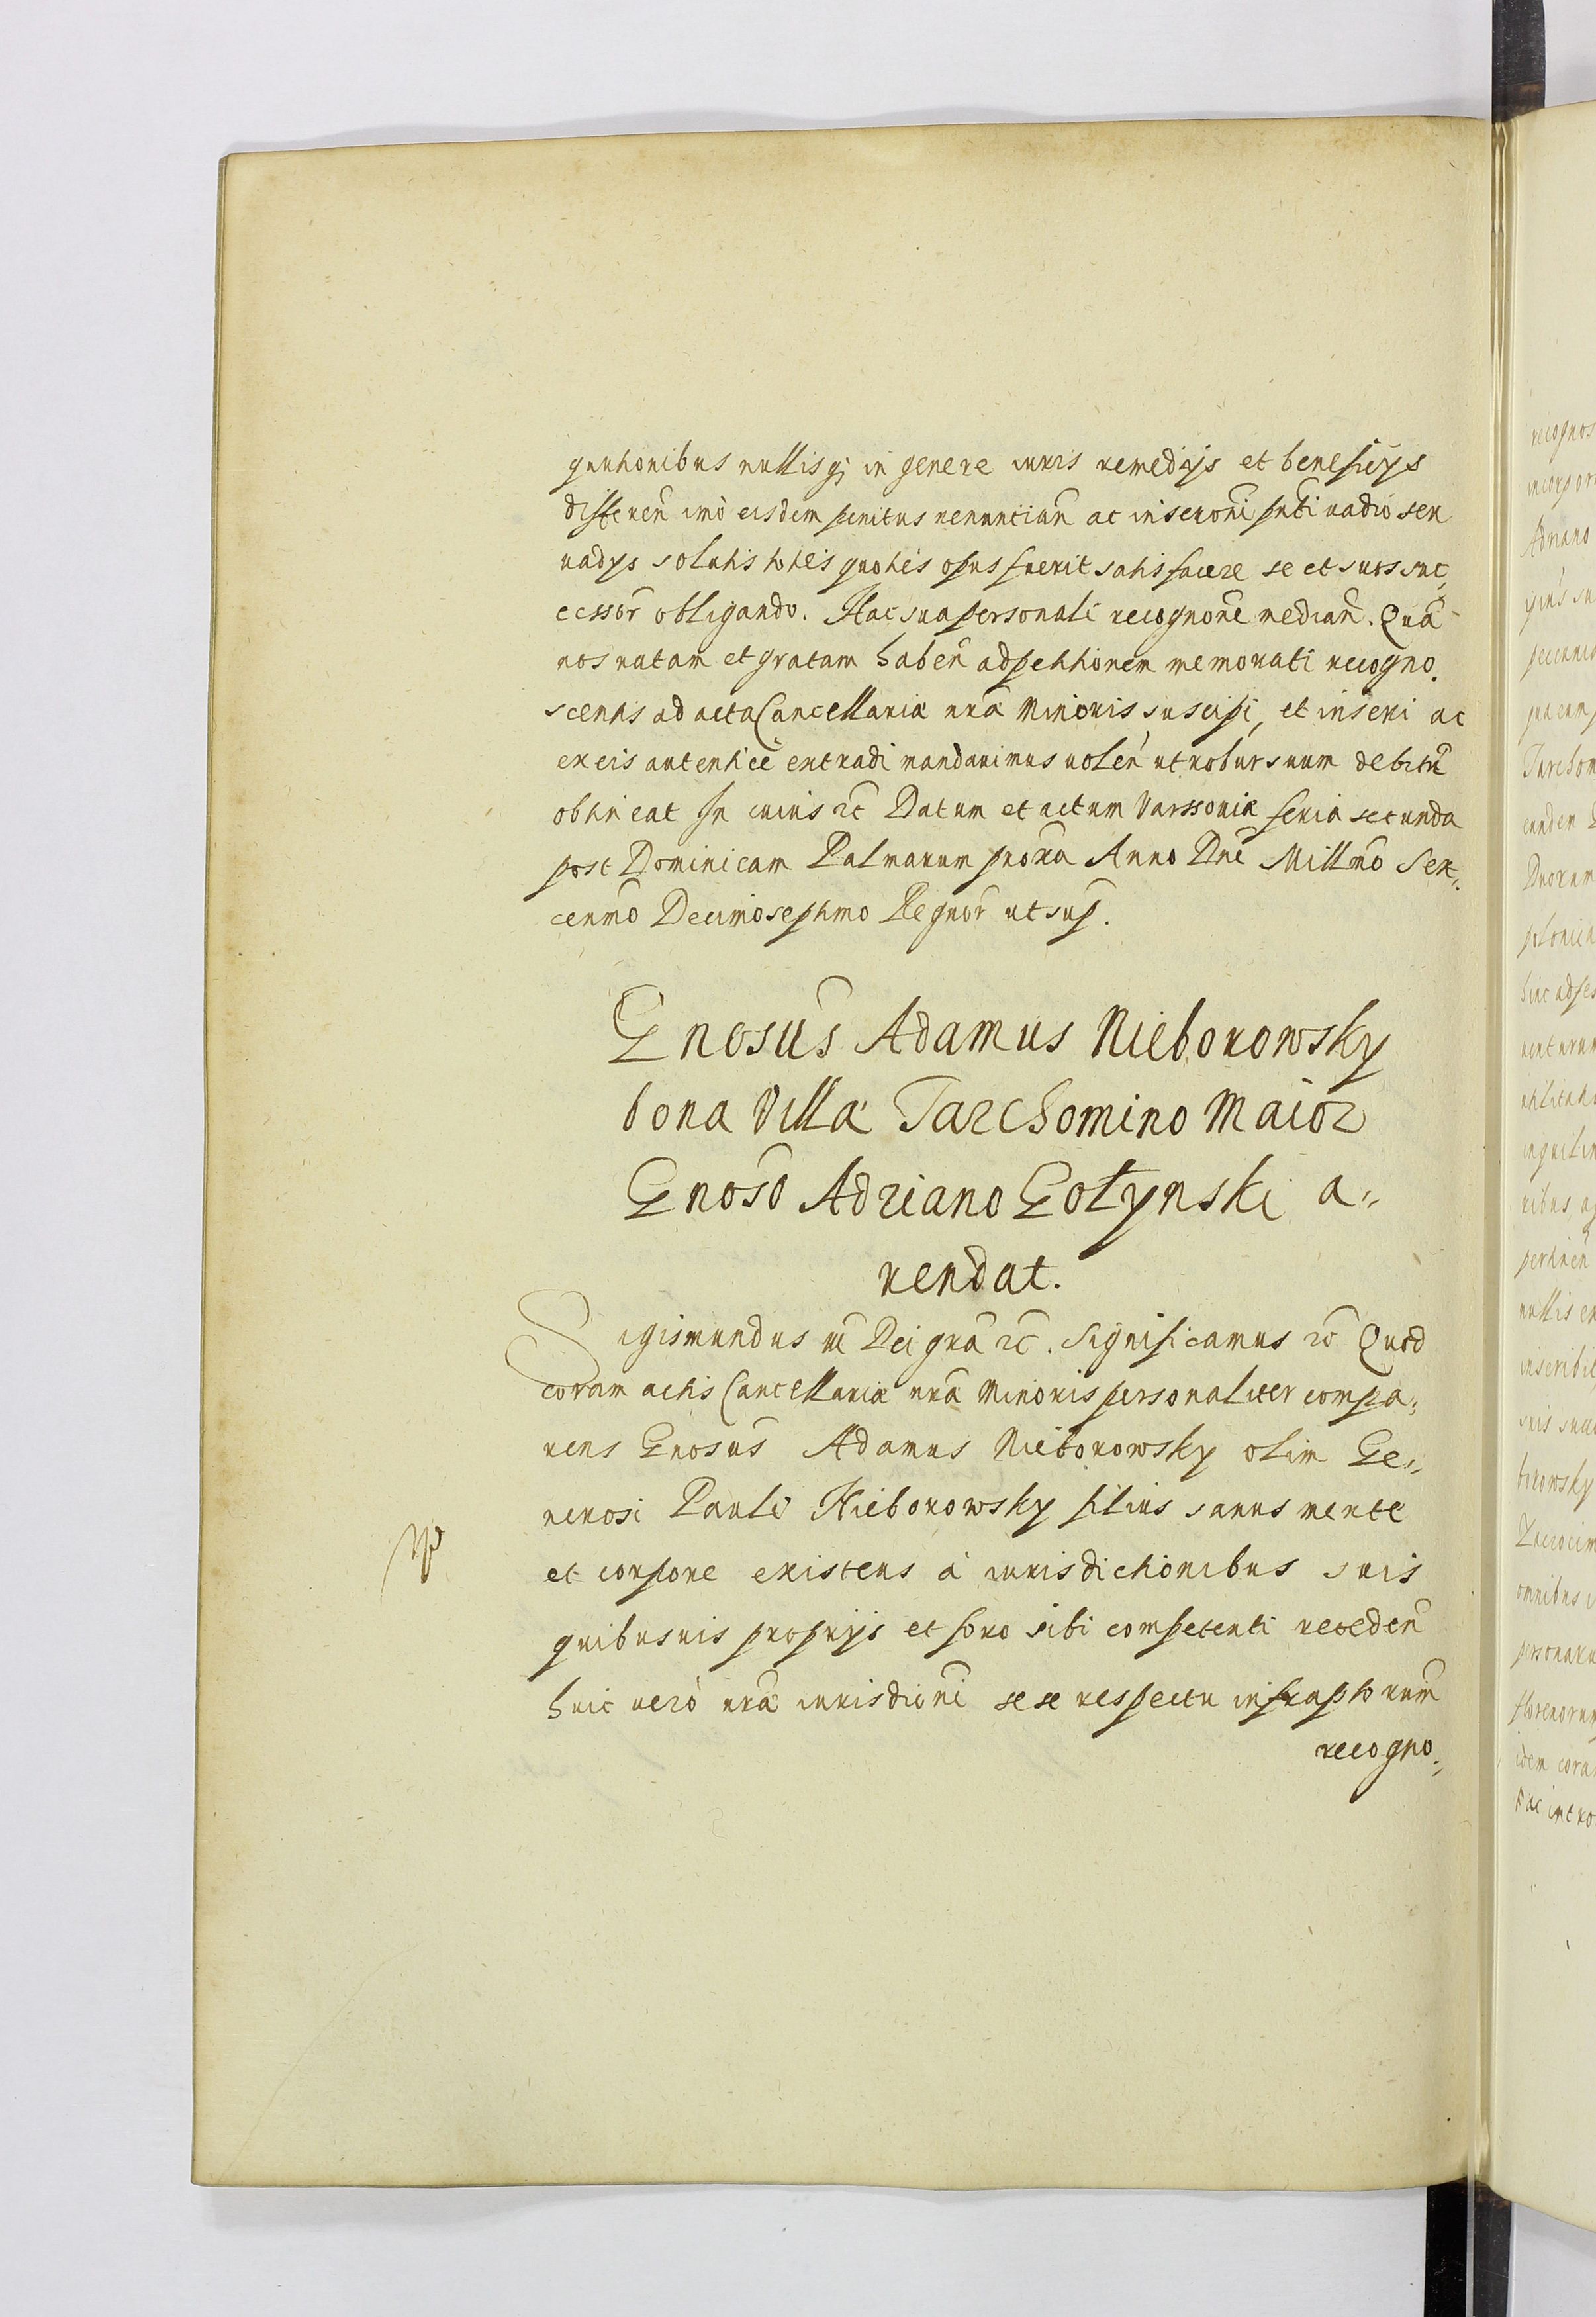 quutionibus nullisq; in genere iuris remedijs et beneficijs
differen̄ imò eisdem penitus renuntian̄ ac inscron̄i pn̄ti vadio seu
vadijs solutis toties quoties opus fuerit satisfacere se et suos suc,
cessor̄ obligando. Hac sua personali recognon̄e median̄. Quā
nos ratam et gratam haben̄ ad petitionem memorati recogno,
scentis ad acta Cancellariæ nr̄æ Minoris suscipi, et inseri ac
ex eis autenticè extradi mandavimus volen̄ ut robur suum debitū
obtineat In cuius rc̄ Datum et actum Varssoviæ feria secunda
post Dominicam Palmarum prox̄a Anno Dn̄i Mill̄mo Sex,,
cen̄mo Decimoseptimo Regnor̄ ut sup̄.
Gn̄osus Adamus Nieborowsky
bona Villæ Tarchomino Maior
Gn̄oso Adriano Gołynski a,,
rendat.
Sigismundus III Dei gr̄a rc̄. Significamus rc̄ Quod
coram actis Cancellariæ nr̄æ Minoris personaliter compa,
rens Gn̄osus Adamus Nieborowsky olim Ge,,
nerosi Pauli Nieborowsky filius sanus mente
et corpore existens à iurisdictionibus suis
quibusuis proprijs et foro sibi competenti receden̄
huic verò nr̄æ iurisdion̄i sese respectu infrapto rum̄
recogno,
recognos
incorpor
Adriano
Tarchom
eunden
Duorum
inquilin
nullis ex
inscribit
borowsky
omnibus
personaru
florenorum
idem cora